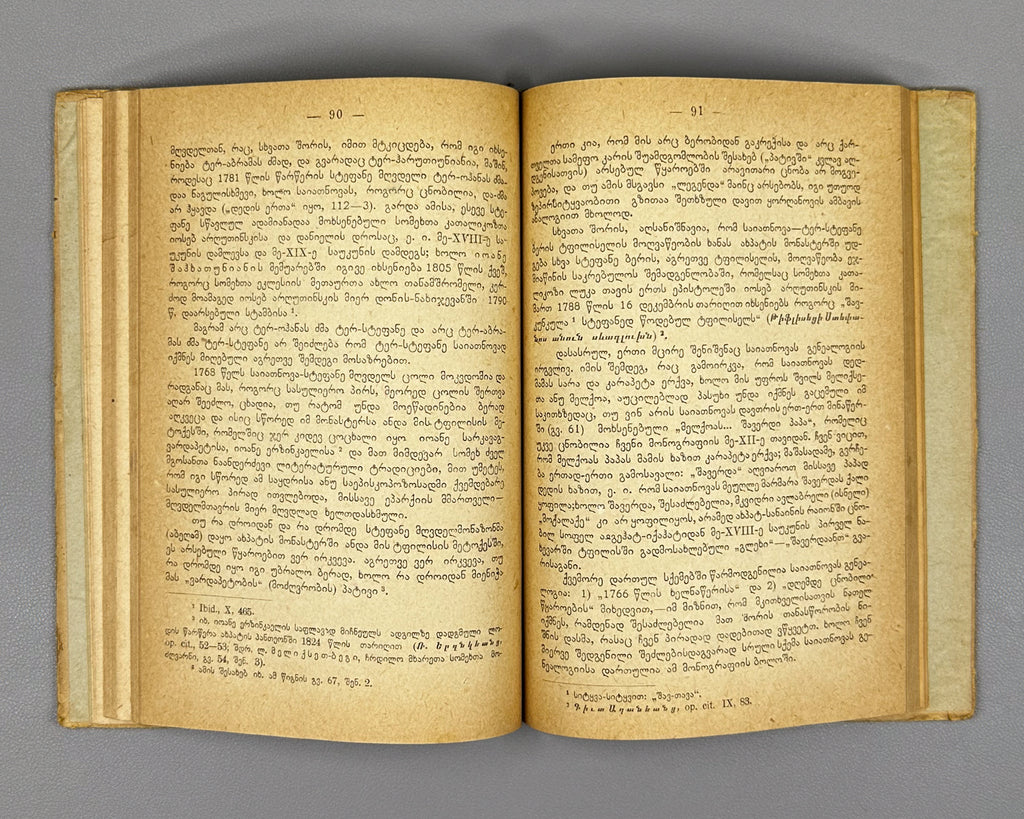 — 90 —
მღვდელთან, რაც, სხვათა შორის, იმით მტკიცდება, რომ იგი იხსე-
ნიება ტერ-აბრამას ძმად, და გვარადაც ტერ-ჰარუთიუნიანია, მაშინ,
როდესაც 1781 წლის წარწერის სტეფანე მღვდელი ტერ-ოჰანას ძმა-
დაა ნაგულისხმევი, ხოლო საიათნოვას, როგორც ცნობილია, და-ძმა
არ ჰყავდა („დედის ერთა“ იყო, 112—3). გარდა ამისა, ესევე სტე-
ფანე სწავლულ ადამიანადაა მოხსენებული სომეხთა კათალიკოზთა
იოსებ არღუთინსკისა და დანიელის დროსაც, ე. ი. მე-XVIII-ე სა-
უკუნის დამლევსა და მე-XIX-ე საუკუნის დამდეგს; ხოლო იოანე
შაჰხათუნიანის მემუარებში იგივე იხსენიება 1805 წლის ქვეშ,
როგორც სომეხთა ეკლესიის მეთაურთა ახლო თანამშრომელი, კერ-
ძოდ მოამაგედ იოსებ არღუთინსკის მიერ დონის-ნახიჯევანში 1790
წ. დაარსებული სტამბისა ¹.
მაგრამ არც ტერ-ოჰანას ძმა ტერ-სტეფანე და არც ტერ-აბრა-
მას ძმა ტერ-სტეფანე არ შეიძლება რომ ტერ-სტეფანე საიათნოვად
იქმნეს მიღებული აგრეთვე შემდეგი მოსაზრებით.
1768 წელს საიათნოვა-სტეფანე მღვდელს ცოლი მოკვდომია და
რადგანაც მას, როგორც სასულიერო პირს, მეორედ ცოლის შერთვა
აღარ შეეძლო, ცხადია, თუ რატომ უნდა მოეწადინებია ბერად
აღკვეცა და ისიც სწორედ იმ მონასტერსა ანდა მის ტფილისის მე-
ტოქესში, რომელშიც ჯერ კიდევ ცოცხალი იყო იოანე სარკავაგ-
ვარდაპეტისა, იოანე ერზინკაელისა ² და მათ მიმდევარ სომეხ ძველ
მგოსანთა ნაანდერძევი ლიტერატურული ტრადიციები, მით უმეტეს,
რომ იგი სწორედ ამ საყდრისა ანუ საეპისკოპოზოსადმი ქვემდებარე
სასულიერო პირად ითვლებოდა, მისსავე ეპარქიის მმართველი—
მღვდელმთავრის მიერ მღვდლად ხელთდასხმული.
თუ რა დროიდან და რა დრომდე სტეფანე მღვდელმონაზონმა
(აბეღამ) დაყო ახპატის მონასტერში ანდა მის ტფილისის მეტოქესში,
ეს არსებული წყაროებით ვერ ირკვევა. აგრეთვე ვერ ირკვევა, თუ
რა დრომდე იყო იგი უბრალო ბერად, ხოლო რა დროიდან მიენიჭა
მას „ვარდაპეტობის“ (მოძღვრობის) პატივი ³.
¹ Ibid., X, 465.
² იხ. იოანე ერზინკაელის საფლავად მიჩნეულს ადგილზე დადგმული ლო-
დის წარწერა ახპატის პანთეონში 1824 წლის თარიღით (Ռ. Երզնկեանց,
op. cit., 52—53; შდრ. ლ. მელიქსეთ-ბეგი, ჩრდილო მხარეთა სომეხთა მო-
ძღვარნი, გვ. 54, შენ. 3).
³ ამის შესახებ იხ. ამ წიგნის გვ. 67, შენ. 2.
— 91 —
ერთი კია, რომ მის არც ბერობიდან გაკრეჭისა და არც ქარ-
თველთა სამეფო კარის შუამდგომლობის შესახებ („პატივში“ კვლავ აღ-
დგენისათვის) არსებულ წყაროებში არავითარი ცნობა არ მოგვე-
პოვება, და თუ ამის მსგავსი „ლეგენდა“ მაინც არსებობს, იგი უთუოდ
ზეპირსიტყვაობითი გზითაა შეთხზული დავით ყორღანოვის ამბავის
ანალოგიით მხოლოდ.
სხვათა შორის, აღსანიშნავია, რომ საიათნოვა—ტერ-სტეფანე
ბერის ტფილისელის მოღვაწეობის ხანას ახპატის მონასტერში უდ-
გება სხვა სტეფანე ბერის, აგრეთვე ტფილისელის, მოღვაწეობა ეჯ-
მიაწინის საკრებულოს შემადგენლობაში, რომელსაც სომეხთა კათა-
ლიკოზი ლუკა თავის ერთს ეპისტოლეში იოსებ არღუთინსკის მი-
მართ 1788 წლის 16 დეკემბრის თარიღით იხსენიებს როგორც „შავ-
კუნკულა ¹ სტეფანედ წოდებულ ტფილისელს“ (Թիֆլիսեցի Ստեփա-
նոս անուն սեւագլուխն) ².
დასასრულ, ერთი მცირე შენიშვნაც საიათნოვას გენეალოგიის
ირგვლივ. იმის შემდეგ, რაც გამოირკვა, რომ საიათნოვას დედ-
მამას სარა და კარაპეტა ერქვა, ხოლო მის უფროს შვილს მელიქსე-
თა ანუ მელქოა, აუცილებლად პასუხი უნდა იქმნეს გაცემული იმ
საკითხზედაც, თუ ვინ არის საიათნოვას დავთრის ერთ-ერთ მინაწერ-
ში (გვ. 61) მოხსენებული „მელქოას... შავერდი პაპა“, რომელიც
უკვე ცნობილია ჩვენი მონოგრაფიის მე-XII-ე თავიდან. ჩვენ ვიცით,
რომ მელქოას პაპას მამის ხაზით კარაპეტა ერქვა; მაშასადამე, გვრჩე-
ბა ერთად-ერთი გამოსავალი: „შავერდა“ აღვიაროთ მისსავე პაპად
დედის ხაზით, ე. ი. რომ საიათნოვას მეუღლე მარმარა შავერდას ქალი
ყოფილა; ხოლო შავერდა, შესაძლებელია, მკვიდრი ავლაბრელი (ისნელი)
„მოქალაქე“ კი არ ყოფილიყოს, არამედ ახპატ-სანაინის რაიონში ცნო-
ბილ სოფელ აგგეჰატ-იქაჰატიდან მე-XVIII-ე საუკუნის პირველ ნა-
ხევარში ტფილისში გადმოსახლებული „გლეხი“—„შავერდაანთ“ გვა-
რისაგანი.
ქვემორე დართულ სქემებში წარმოდგენილია საიათნოვას გენეა-
ლოგია: 1) „1766 წლის ხელნაწერისა“ და 2) „დღემდე ცნობილი
წყაროების“ მიხედვით,—იმ მიზნით, რომ მკითხველისათვის ნათელ
იქმნეს, რამდენად შესაძლებელია მათ შორის თანასწორობის ნი-
შნის დასმა, რასაც ჩვენ პირადად დადებითად ვწყვეტთ. ხოლო ჩვენ
მიერვე შედგენილი შეძლებისდაგვარად სრული სქემა საიათნოვას გე-
ნეალოგიისა დართულია ამ მონოგრაფიის ბოლოში.
¹ სიტყვა-სიტყვით: „შავ-თავა“.
² Գիւտ Աղանեանց, op. cit. IX, 83.